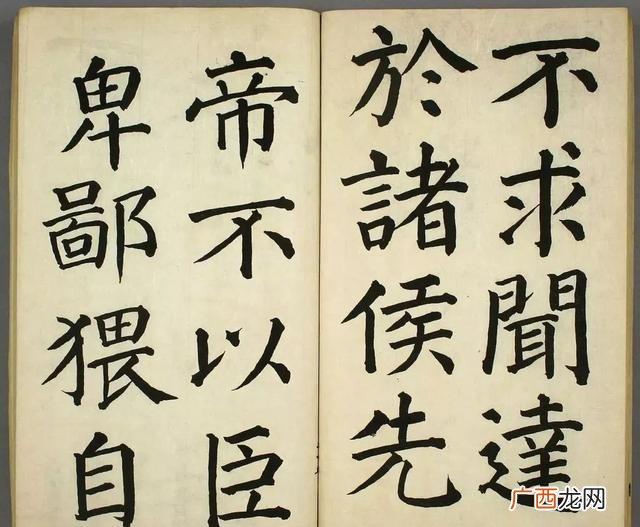 不求聞達
於諸侯先
帝不以臣
卑鄙猥自
广西龙网